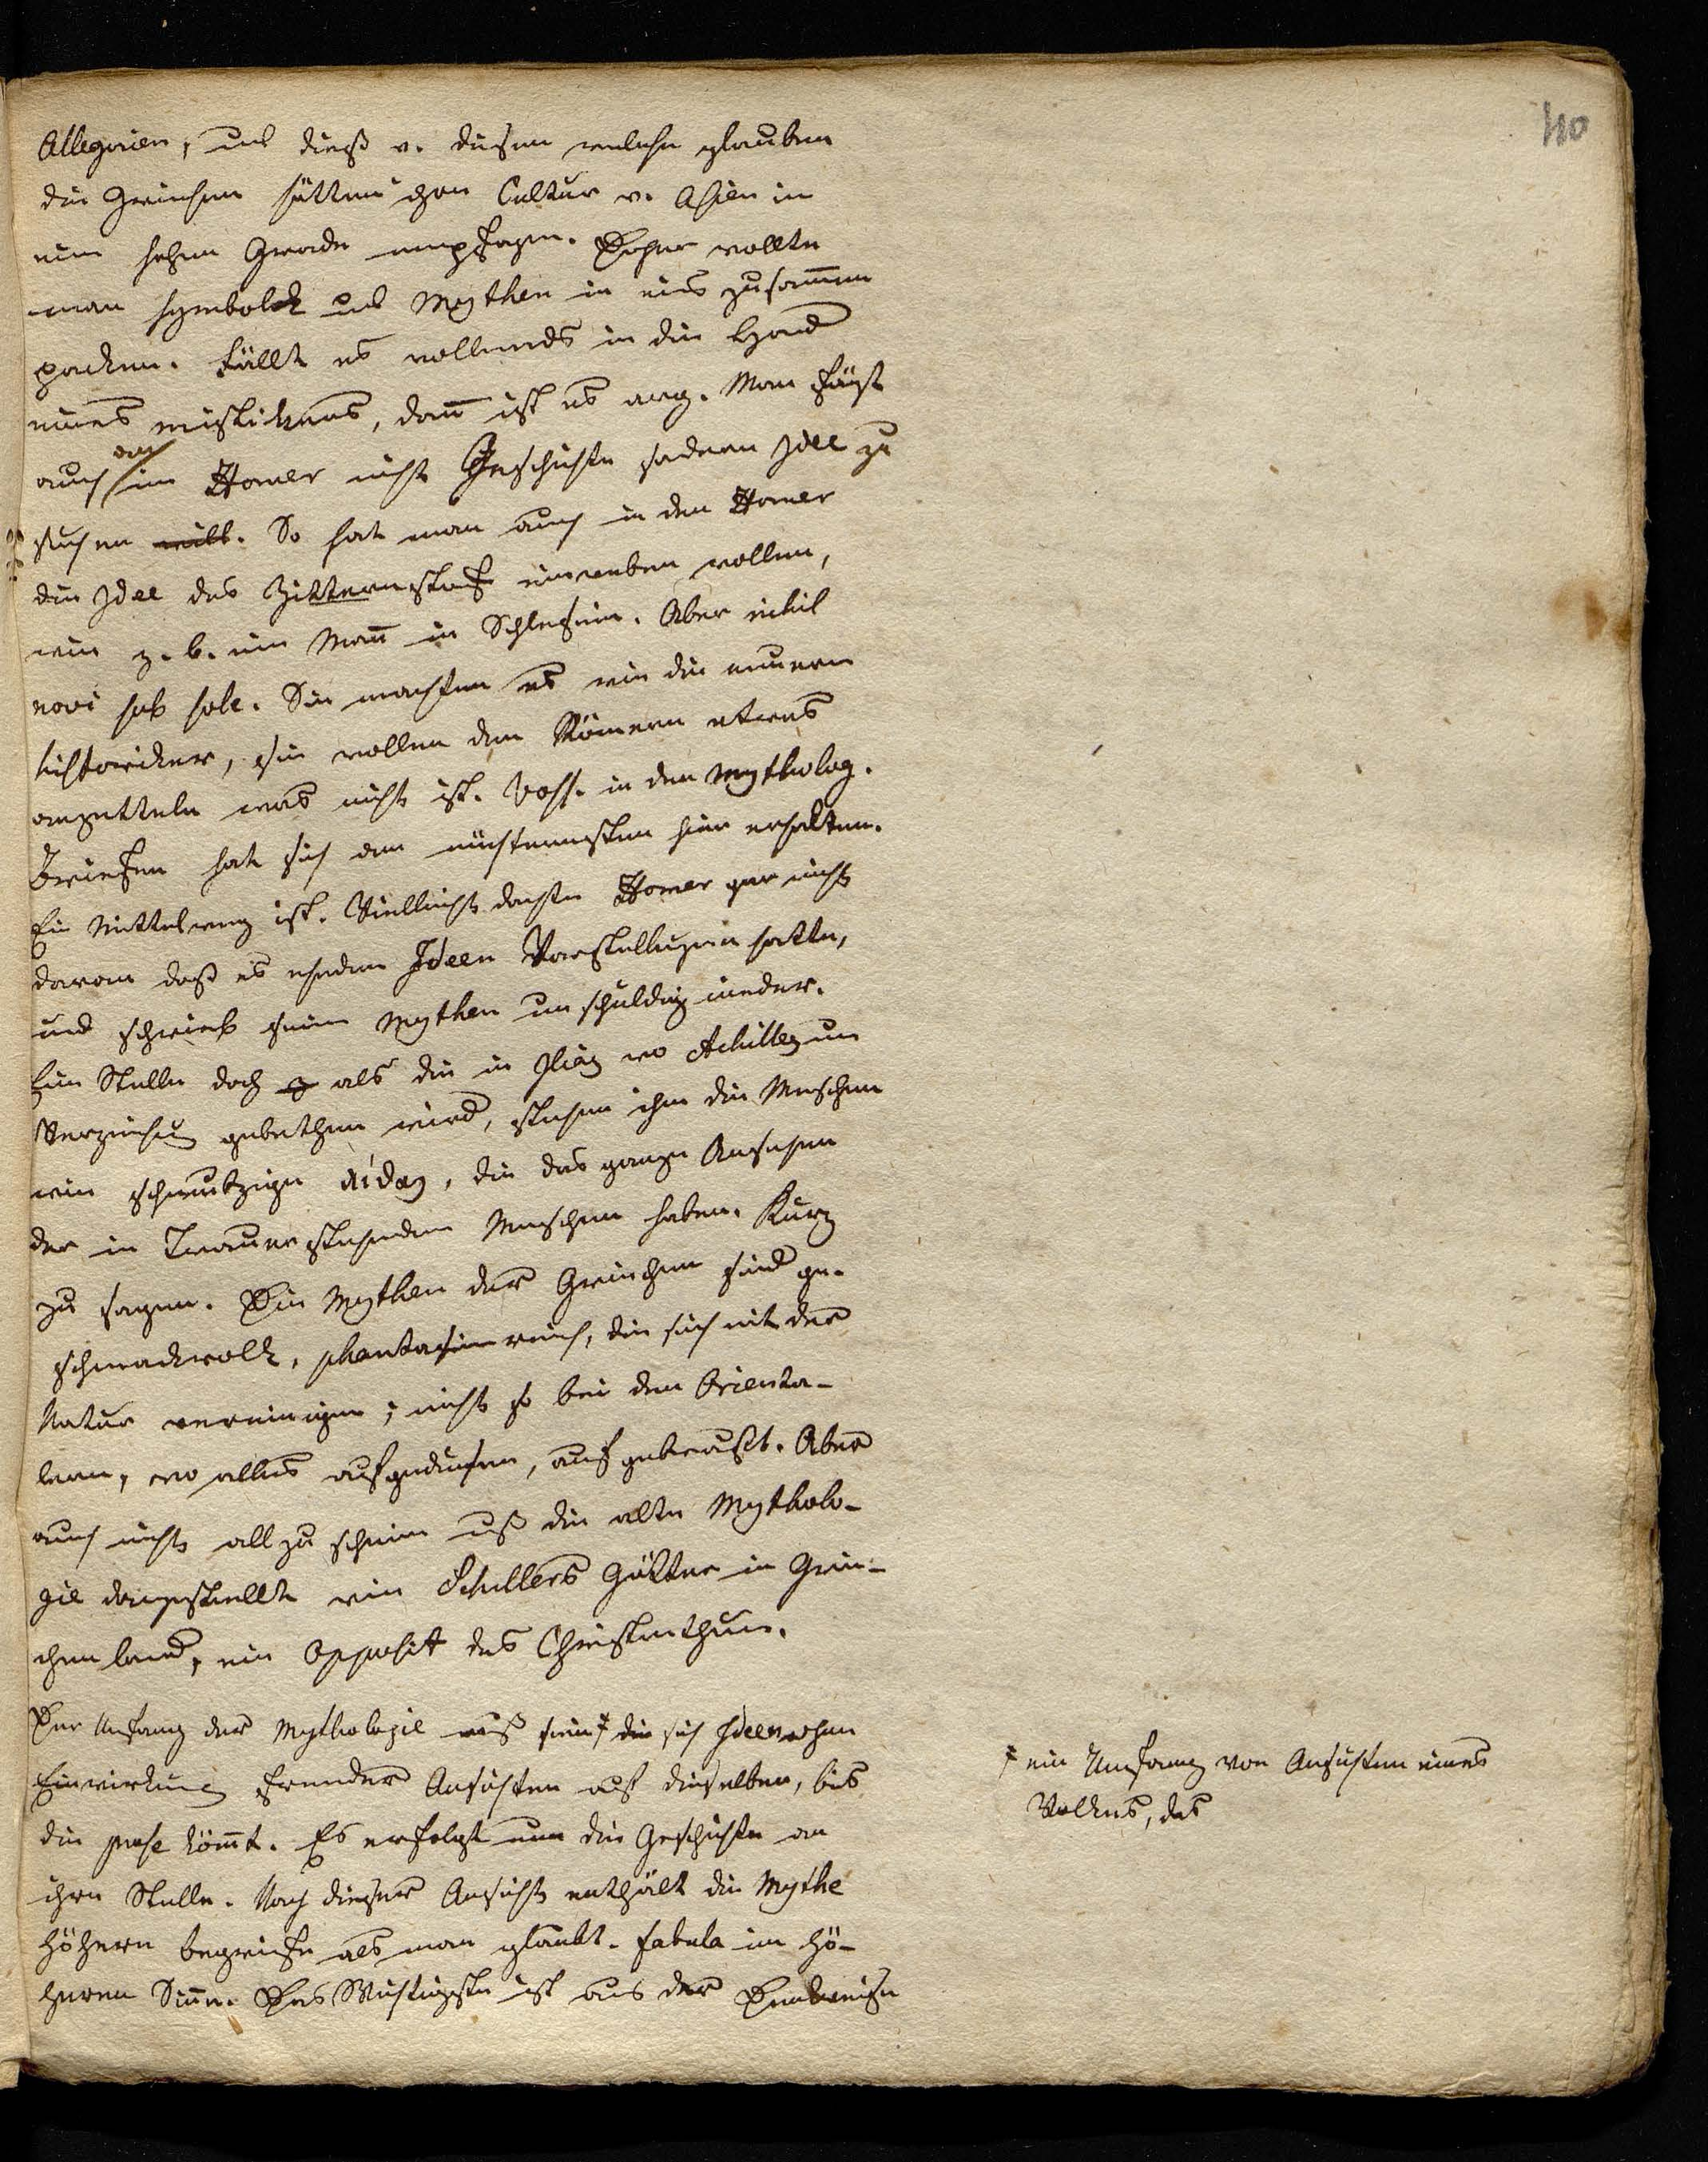 40
Allegorien, und dieß v. diesen welche glauben
die Griechen hätten ihre Cultur v. Asien in
einem hohen Grade empfangen. Daher wollte
man symbole und Mythen in eins zusam̄en
packen. Fällt es vollends in die Hand
eines mistikers, dan̄ ist es arg. Man fängt
auch an im Homer nicht Geschichte sondern Idee zu
suchen will. So hat man auch in den Homer
die Idee des einweben wollen,
wie z. b. ein Man̄ in Schlesien. Aber nihil
novi sub sole. Sie machten es wie die neuern
historiker, sie wollen den Römern etwas
anzetteln was nicht ist. Voss. in den mytholog.
Briefen hat sich am nüchternsten hier erhalten.
Ein Mittelweg ist. Vielleicht dachte Homer gar nicht
daran daß es Ideen Vorstellungen hatte,
und schrieb seine Mythen unschuldig nieder.
Eine Stelle doch als die in Ilias wo Achilles um
Verzeihung gebethen wird, stehen ihm die Menschen
wie schmutzige, die das ganze Ansehen
der in Trauer stehenden Menschen haben. Kurz
zu sagen. Die Mythen der Griechen sind ge-
schmackvoll, phantasienreich, die sich mit der
Natur vereinigen; nicht so bei den Orienta-
lern, wo alles aufgedunsen, aufgebraußt. Aber
auch nicht all zu schön muß die alte Mytholo-
gie dargestellt wie Schillers Götter in Grie-
chenland, ein Opposit des Christenthum.
Der Anfang der Mythologie muß sein ‡ die sich Ideen ohne
Einwirkung fremder Ansichten auf dieselben, bis
die prose köm̄t. Es erfolgt nun die Geschichte an
ihre Stelle. Nach dieser Ansicht enthält die Mythe
höhere begriffe als man glaubt. fabula im hö-
heren Sin̄e. Das Wichtigste ist aus der Denkweise
‡ ein Umfang von Ansichten eines
Volkes, das